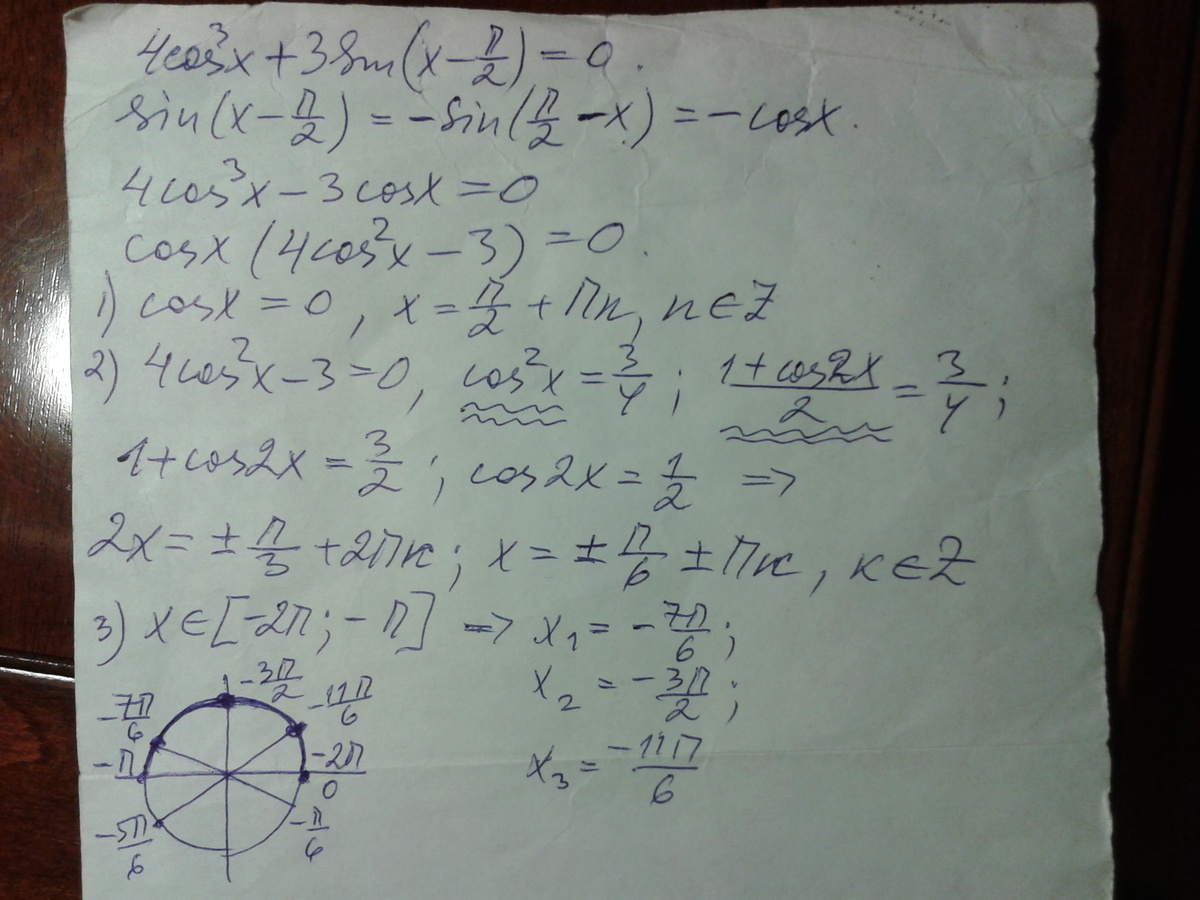 4cos³x + 3sin(x − π/2) = 0.
sin(x − π/2) = −sin(π/2 − x) = −cosx.
4cos³x − 3cosx = 0
cosx (4cos²x − 3) = 0.
1) cosx = 0, x = π/2 + πn, n ∈ Z
2) 4cos²x − 3 = 0, cos²x = 3/4; (1 + cos2x)/2 = 3/4;
1 + cos2x = 3/2; cos2x = 1/2 ⇒
2x = ± π/3 + 2πк; x = ± π/6 ± πк, к ∈ Z
3) x ∈ [−2π; −π] ⇒ x₁ = −7π/6;
x₂ = −3π/2;
x₃ = −11π/6
−3π/2
−7π/6
−11π/6
−π
−2π
0
−5π/6
−π/6